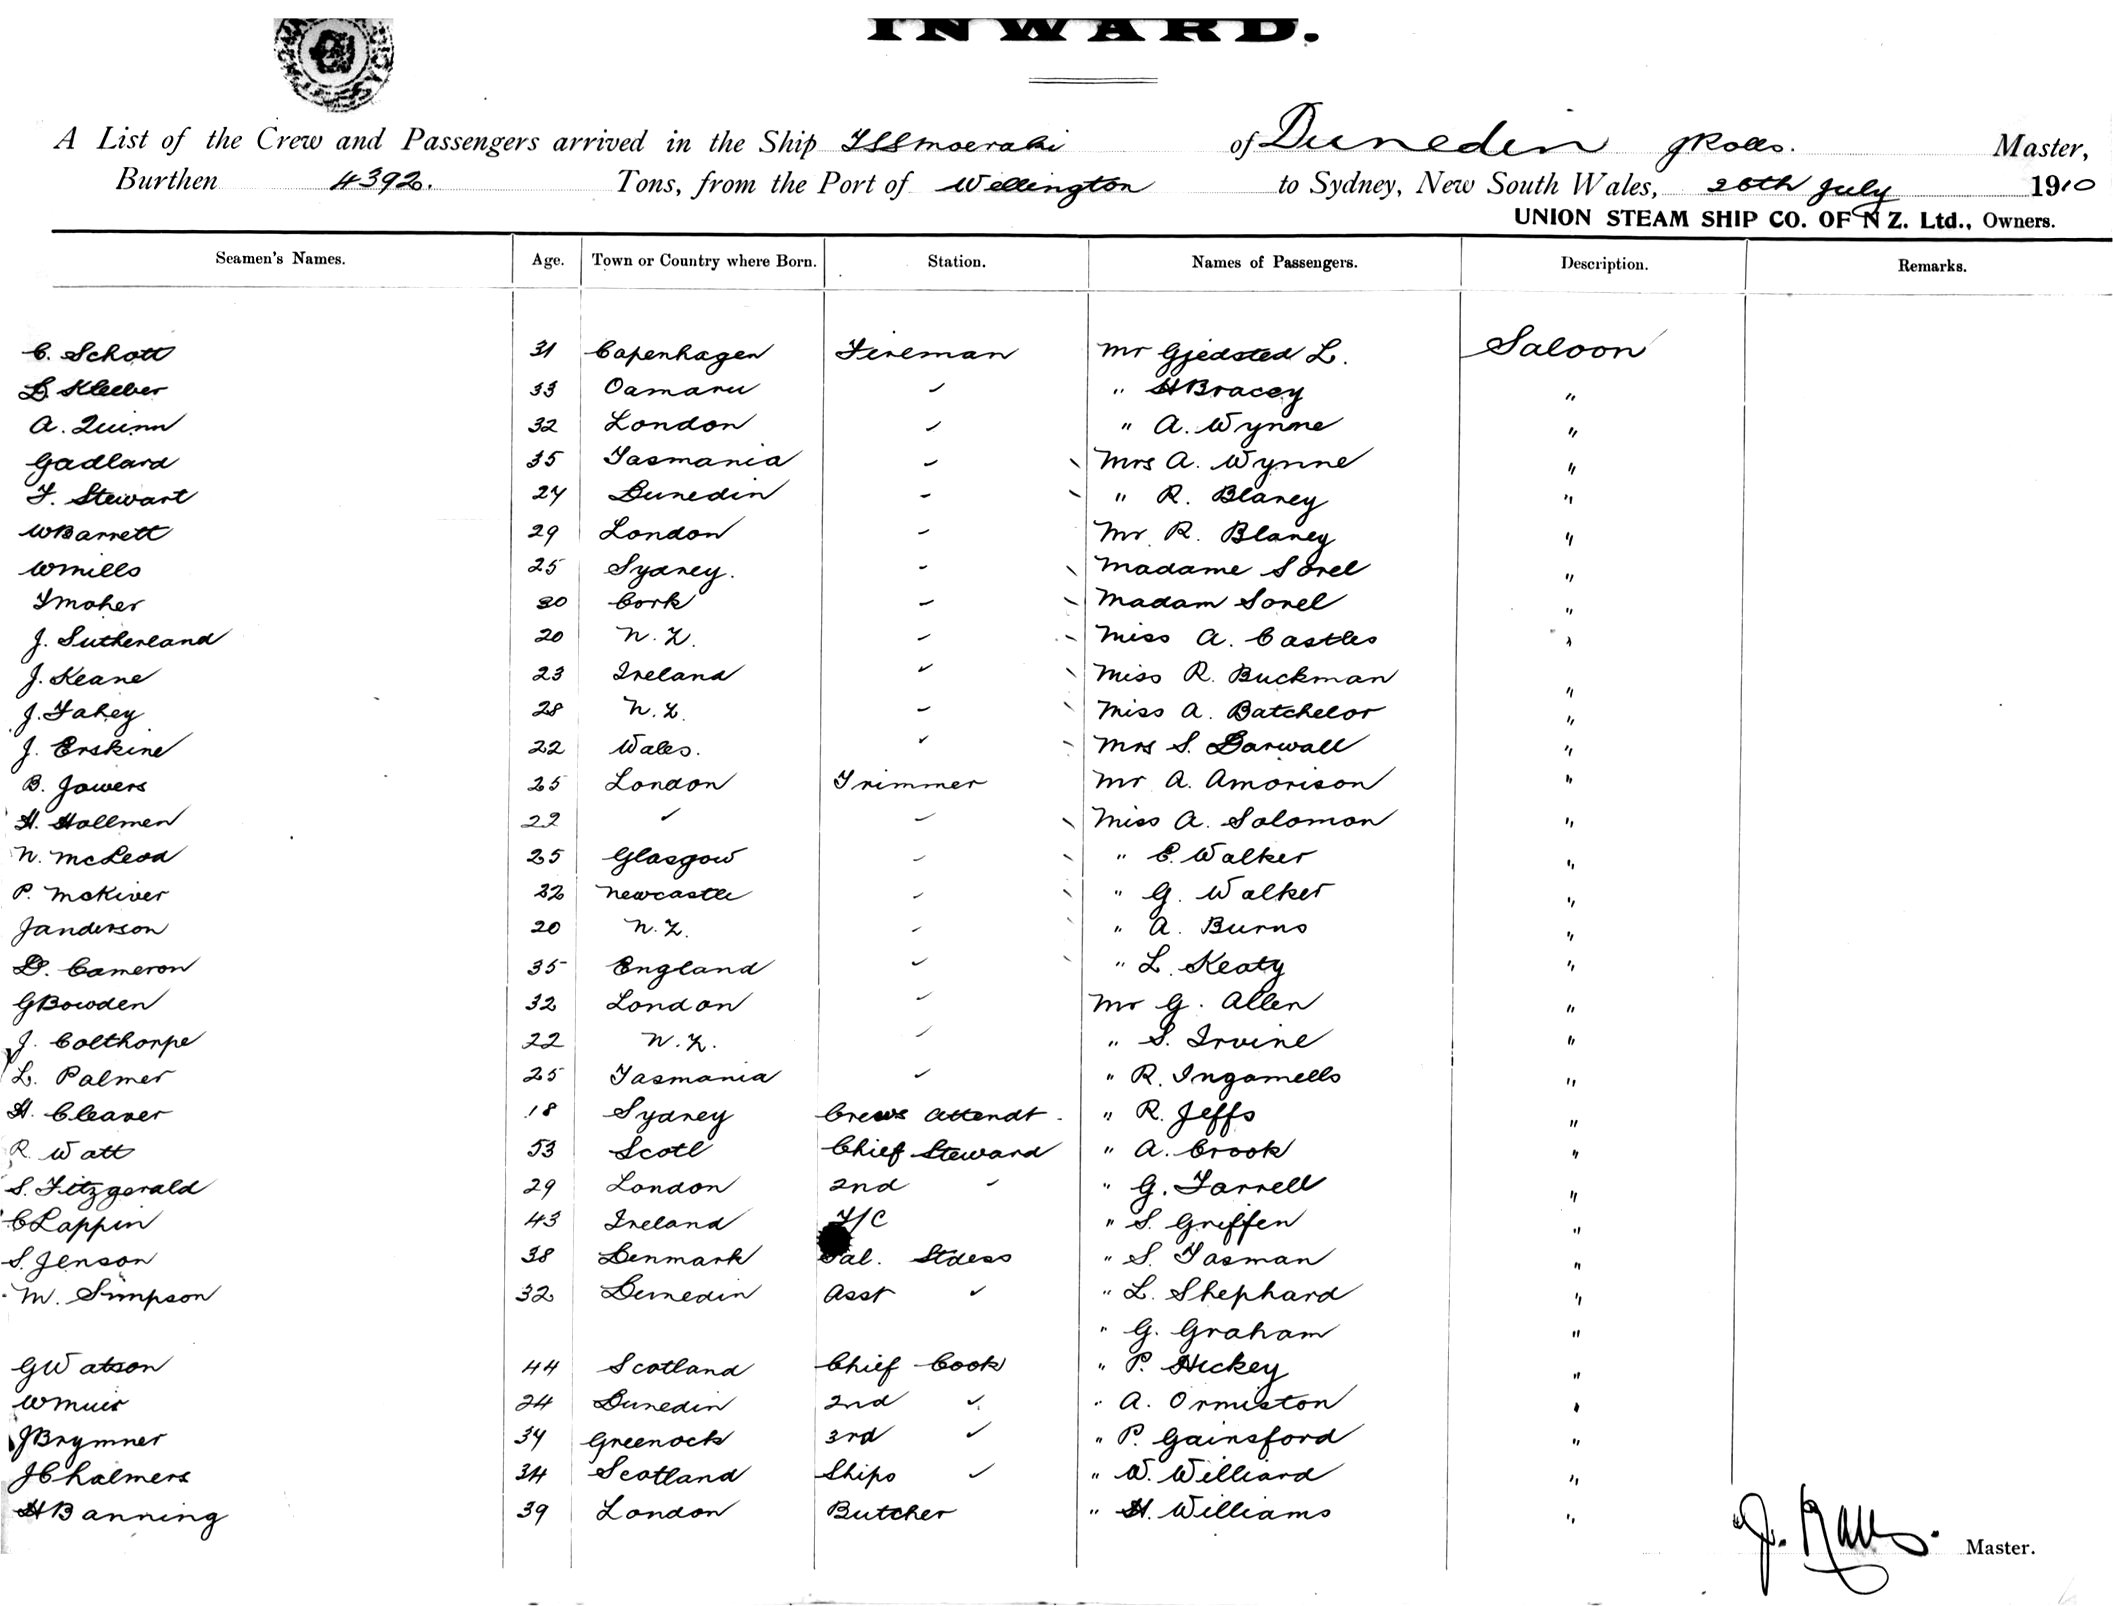 INWARD.
A List of the Crew and Passengers arrived in the Ship TSS Moeraki of Dunedin J Rolls. Master,
Burthen 4392. Tons, from the Port of Wellington to Sydney, New South Wales, 26th July 1910
UNION STEAM SHIP CO. OF N Z. Ltd., Owners.
Seamen's Names. Age. Town or Country where Born. Station. Names of Passengers. Description. Remarks.
C. Schott 31 Copenhagen Fireman Mr Gjedsted L. Saloon
Kleeber 33 Oamaru ✓ " H Bracey "
A. Quinn 32 London ✓ " A. Wynne "
G Adlard 35 Tasmania ✓ Mrs A. Wynne "
F. Stewart 27 Dunedin - " R. Blaney "
W Barrett 29 London - Mr R. Blaney "
W Mills 25 Sydney. - Madame Sorel "
T Moher 30 Cork - Madam Sorel "
J. Sutherland 20 N.Z. - Miss A. Castles "
J. Keane 23 Ireland ✓ Miss R. Buckman "
J. Fahey 28 N.Z. - Miss A. Batchelor "
J. Erskine 22 Wales. ✓ Mrs S. Darwall "
B. Jowers 25 London Trimmer Mr A. Amorison "
H. Hollmen 22 ✓ ✓ Miss A. Solomon "
N. McLeod 25 Glasgow ✓ " E. Walker "
P. McKiver 32 Newcastle ✓ " G. Walker "
J Anderson 20 N.Z. ✓ " A. Burns "
D. Cameron 35 England ✓ " L. Keaty "
G Bowden 32 London ✓ Mr G. Allen "
J. Colthorpe 22 N.Z. ✓ " S. Irvine "
L. Palmer 25 Tasmania ✓ " R. Ingamells "
H. Cleaver 18 Sydney Crews Attendt. " R. Jeffs "
R. Watt 53 Scotl Chief Steward " A. Crook "
S. Fitzgerald 29 London 2nd ✓ " G. Farrell "
C Lappin 43 Ireland F/C " S. Griffen "
S. Jenson 38 Denmark Sal. Stdess " S. Tasman "
M. Simpson 32 Dunedin Asst ✓ " L. Shephard "
" G. Graham "
G Watson 44 Scotland Chief Cook " P. Hickey "
W Muir 24 Dunedin 2nd ✓ " A. Ormiston "
J Brymner 34 Greenock 3rd ✓ " P. Gainsford "
J Chalmers 34 Scotland Ships ✓ " W. Williard "
H Banning 39 London Butcher " H. Williams "
J. Rolls. Master.